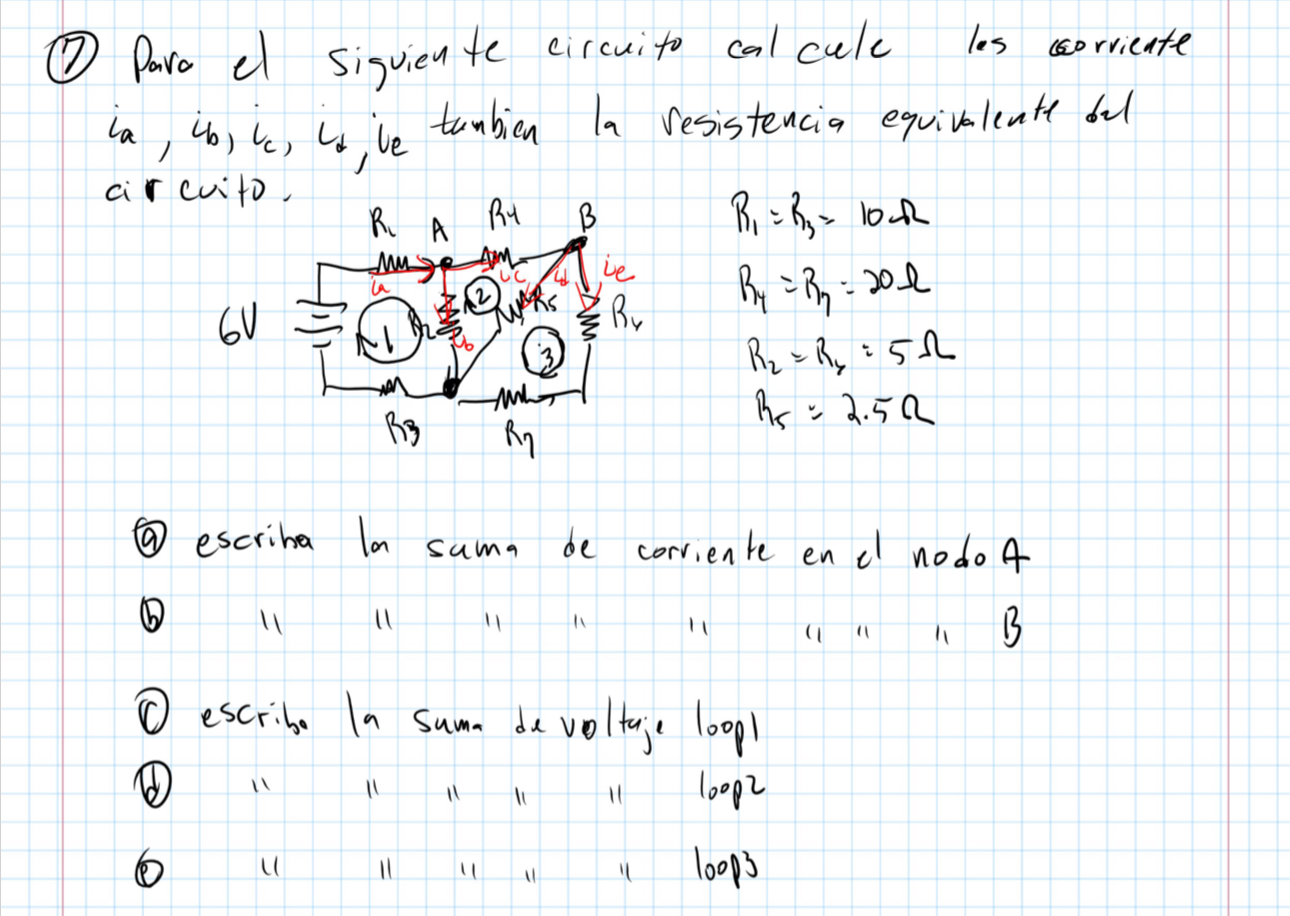 ⑦ Para el siguiente circuito calcule las corriente
ia, ib, ic, id, ie tambien la resistencia equivalente del
circuito.
R1 A R4 B
R1 = R3 = 10Ω
ia ic id ie
R4 = R7 = 20Ω
6V 1 R2 2 R5 R6
ib 3
R2 = R6 = 5Ω
R3 R7
R5 = 2.5Ω
ⓐ escriba la suma de corriente en el nodo A
ⓑ " " " " " " " " B
ⓒ escriba la suma de voltaje loop1
ⓓ " " " " " loop2
ⓔ " " " " " loop3